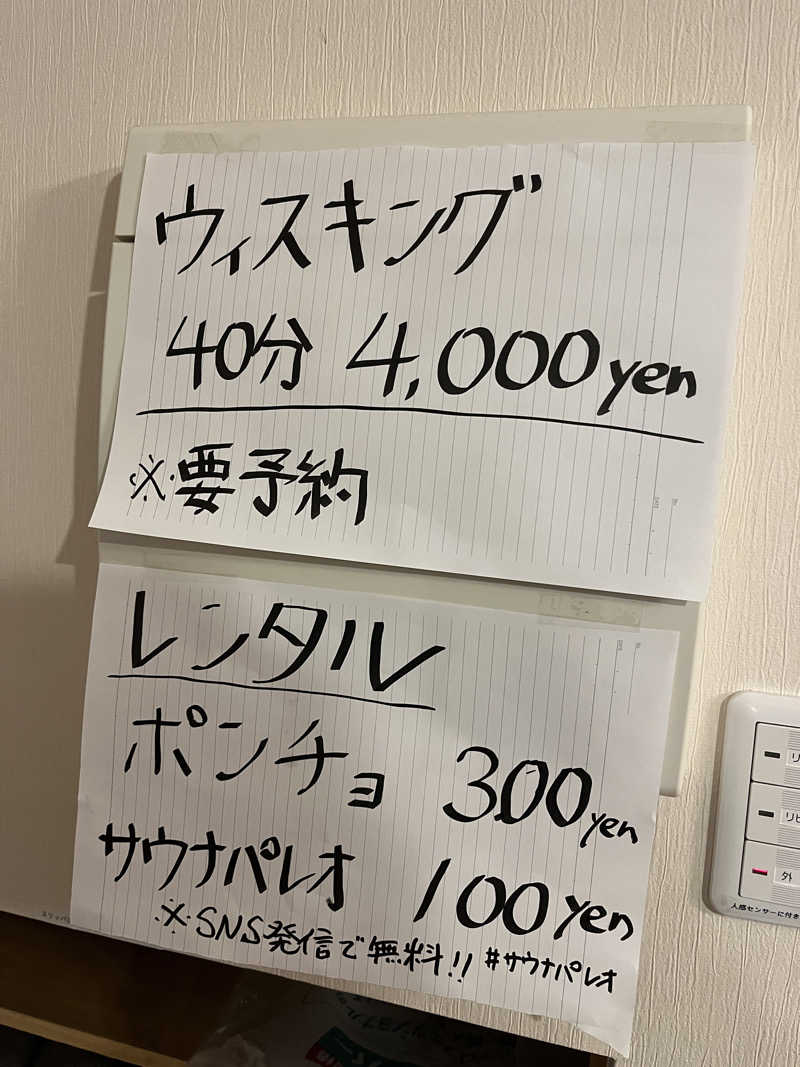 ウィスキング
40分 4,000yen
※要予約
レンタル
ポンチョ 300yen
サウナパレオ 100yen
※SNS発信で無料!! #サウナパレオ
リ
リビ
外
人感センサーに付き